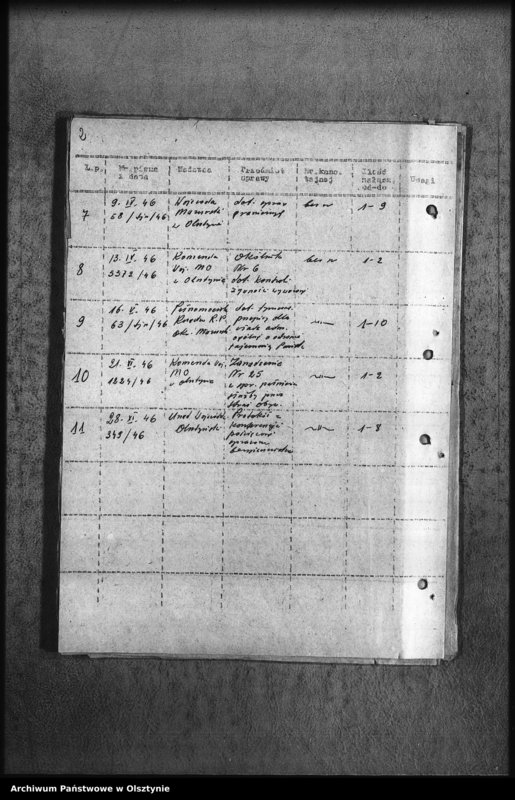 2
L.p. Nr.pisma i data Nadawca Przedmiot sprawy Nr.kanc. tajnej Ilość załącz. od-do Uwagi
7 9. IV. 46 Wojewoda dot. spraw bez nr 1-9
58/tjn/46 Mazurski granicznych
w Olsztynie
8 13. IV. 46 Komenda Okólnik bez nr 1-2
3372/46 Woj. MO Nr 6
w Olsztynie dot. kontroli
9 16. V. 46 Pełnomocnik dot. 1-10
63/tjn/46 Rządu R.P. dla
Okr. Mazursk. władz adm.
ogólnej o ochronie
tajemnicy Państw.
10 21. VI. 46 Komenda Woj. Zarządzenie 1-2
1824/46 MO Nr 25
w Olsztynie w spr.
przez
11 28. VI. 46 Urząd Wojewódz. Protokół z 1-8
349/46 Olsztyński konferencji
poświęconej
sprawom
bezpieczeństwa
Archiwum Państwowe w Olsztynie